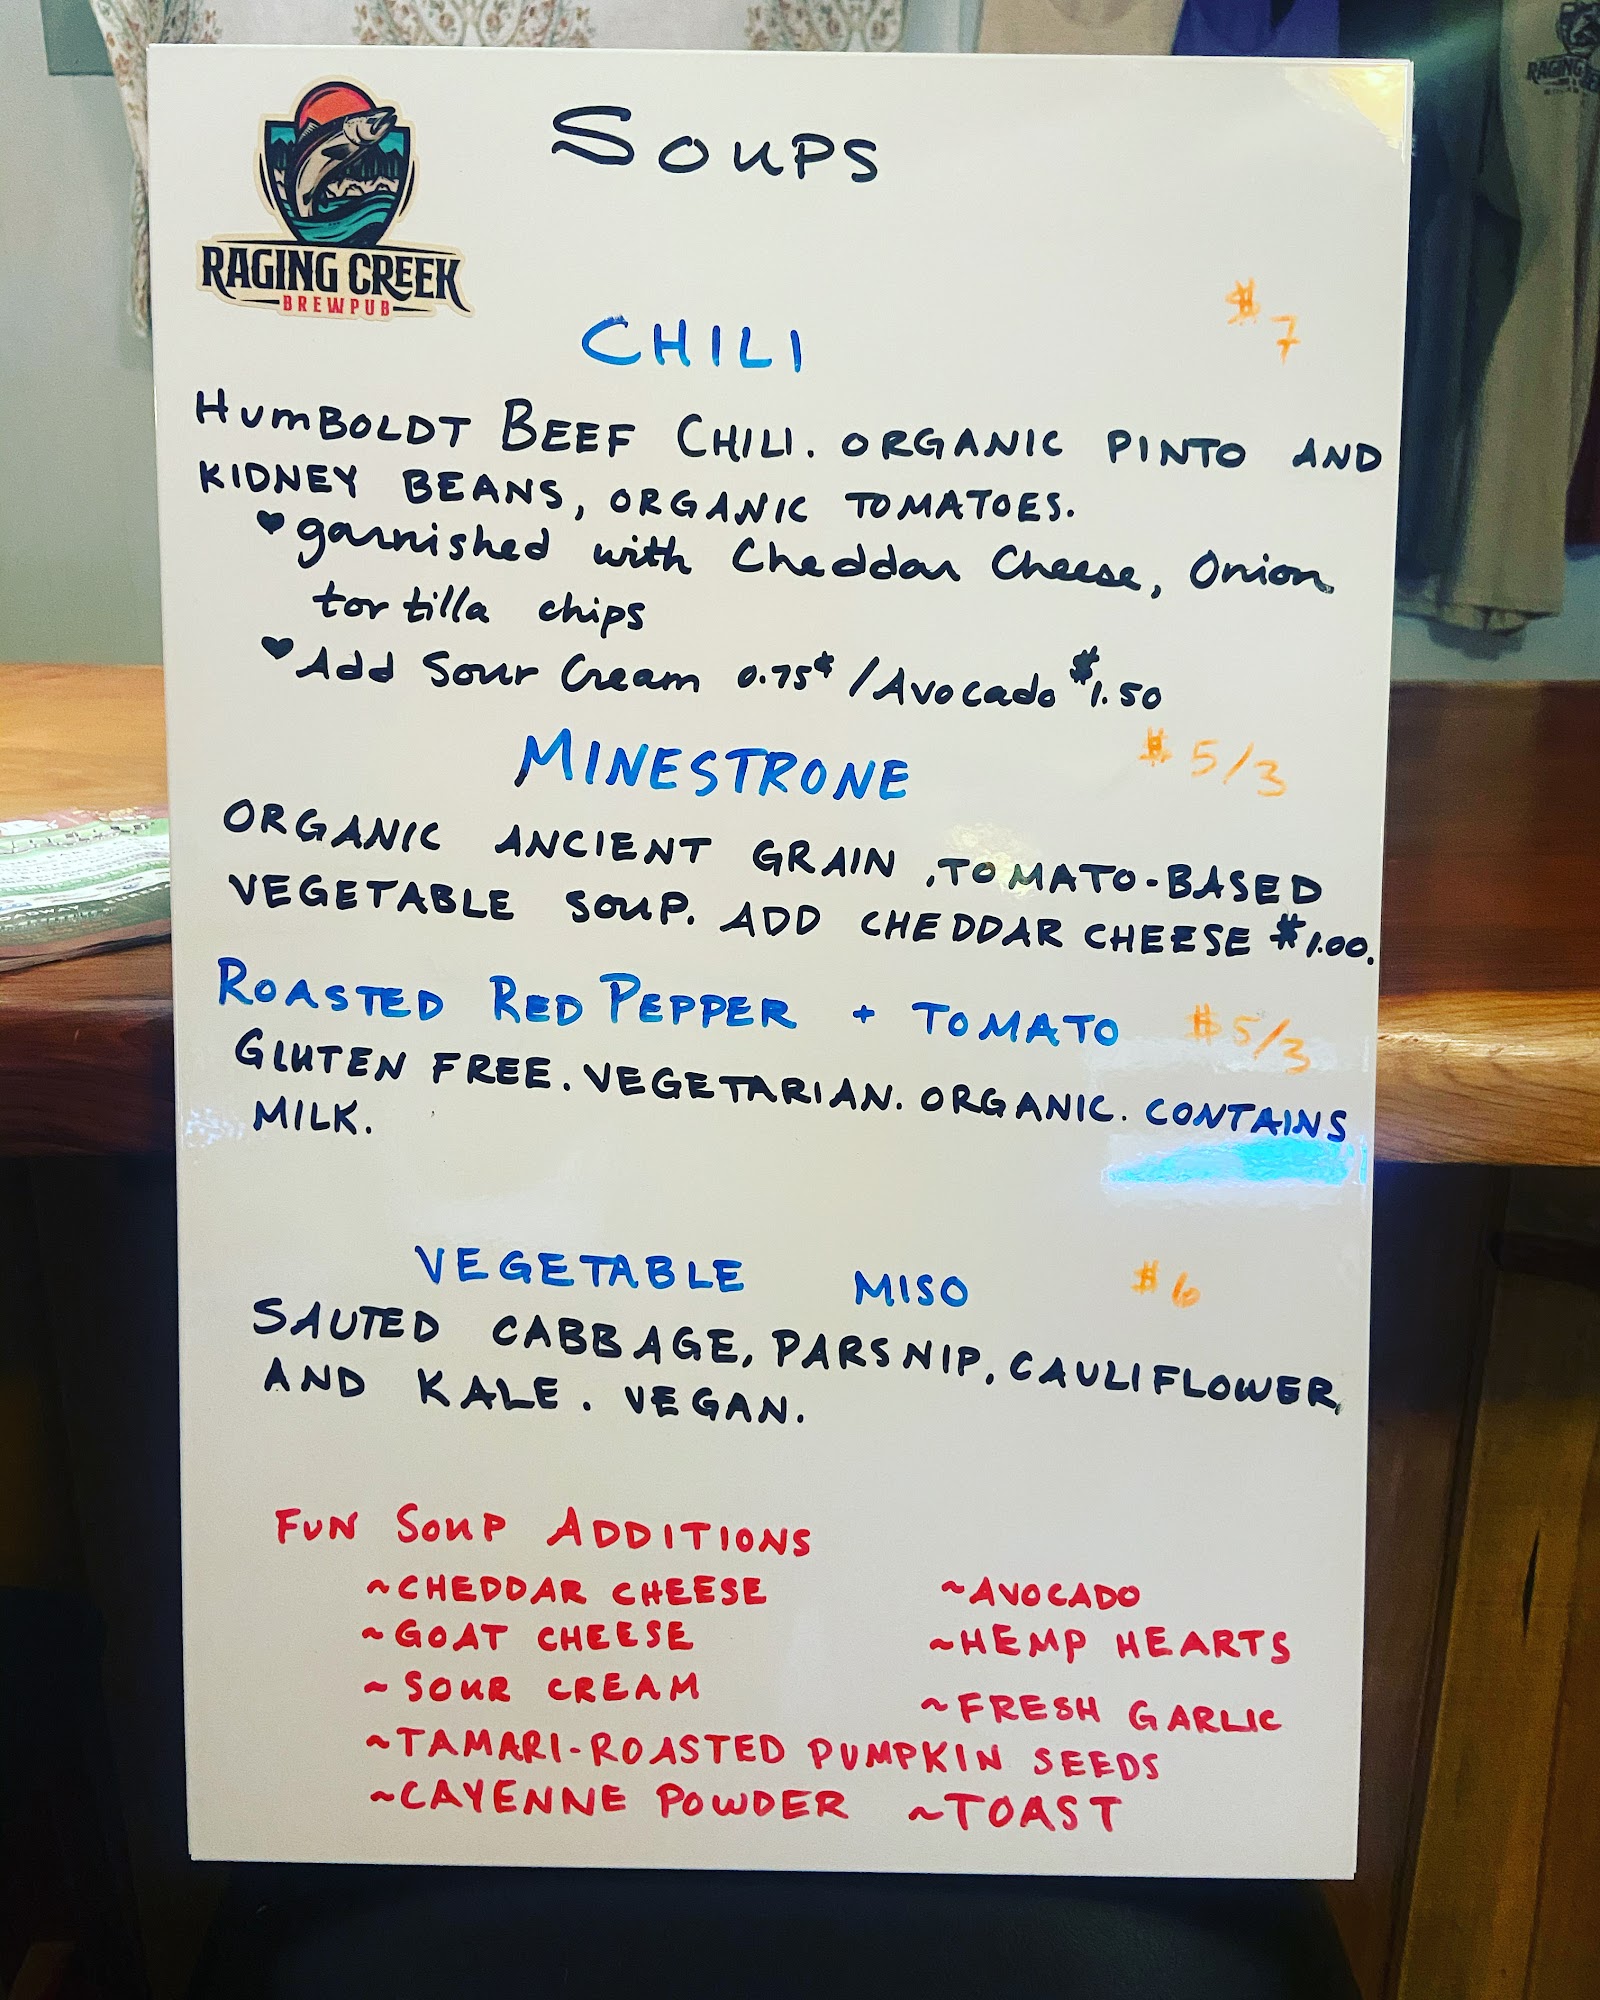 Soups
RAGING CREEK
BREWPUB
CHILI $7
HUMBOLDT BEEF CHILI. ORGANIC PINTO AND
KIDNEY BEANS, ORGANIC TOMATOES.
♥ garnished with Cheddar Cheese, Onion
tortilla chips
♥ Add Sour Cream 0.75¢ / Avocado $1.50
MINESTRONE $5/3
ORGANIC ANCIENT GRAIN, TOMATO-BASED
VEGETABLE SOUP. ADD CHEDDAR CHEESE $1.00.
ROASTED RED PEPPER + TOMATO $5/3
GLUTEN FREE. VEGETARIAN. ORGANIC. CONTAINS
MILK.
VEGETABLE MISO $6
SAUTED CABBAGE, PARSNIP, CAULIFLOWER,
AND KALE. VEGAN.
FUN SOUP ADDITIONS
~CHEDDAR CHEESE ~AVOCADO
~GOAT CHEESE ~HEMP HEARTS
~SOUR CREAM ~FRESH GARLIC
~TAMARI-ROASTED PUMPKIN SEEDS
~CAYENNE POWDER ~TOAST